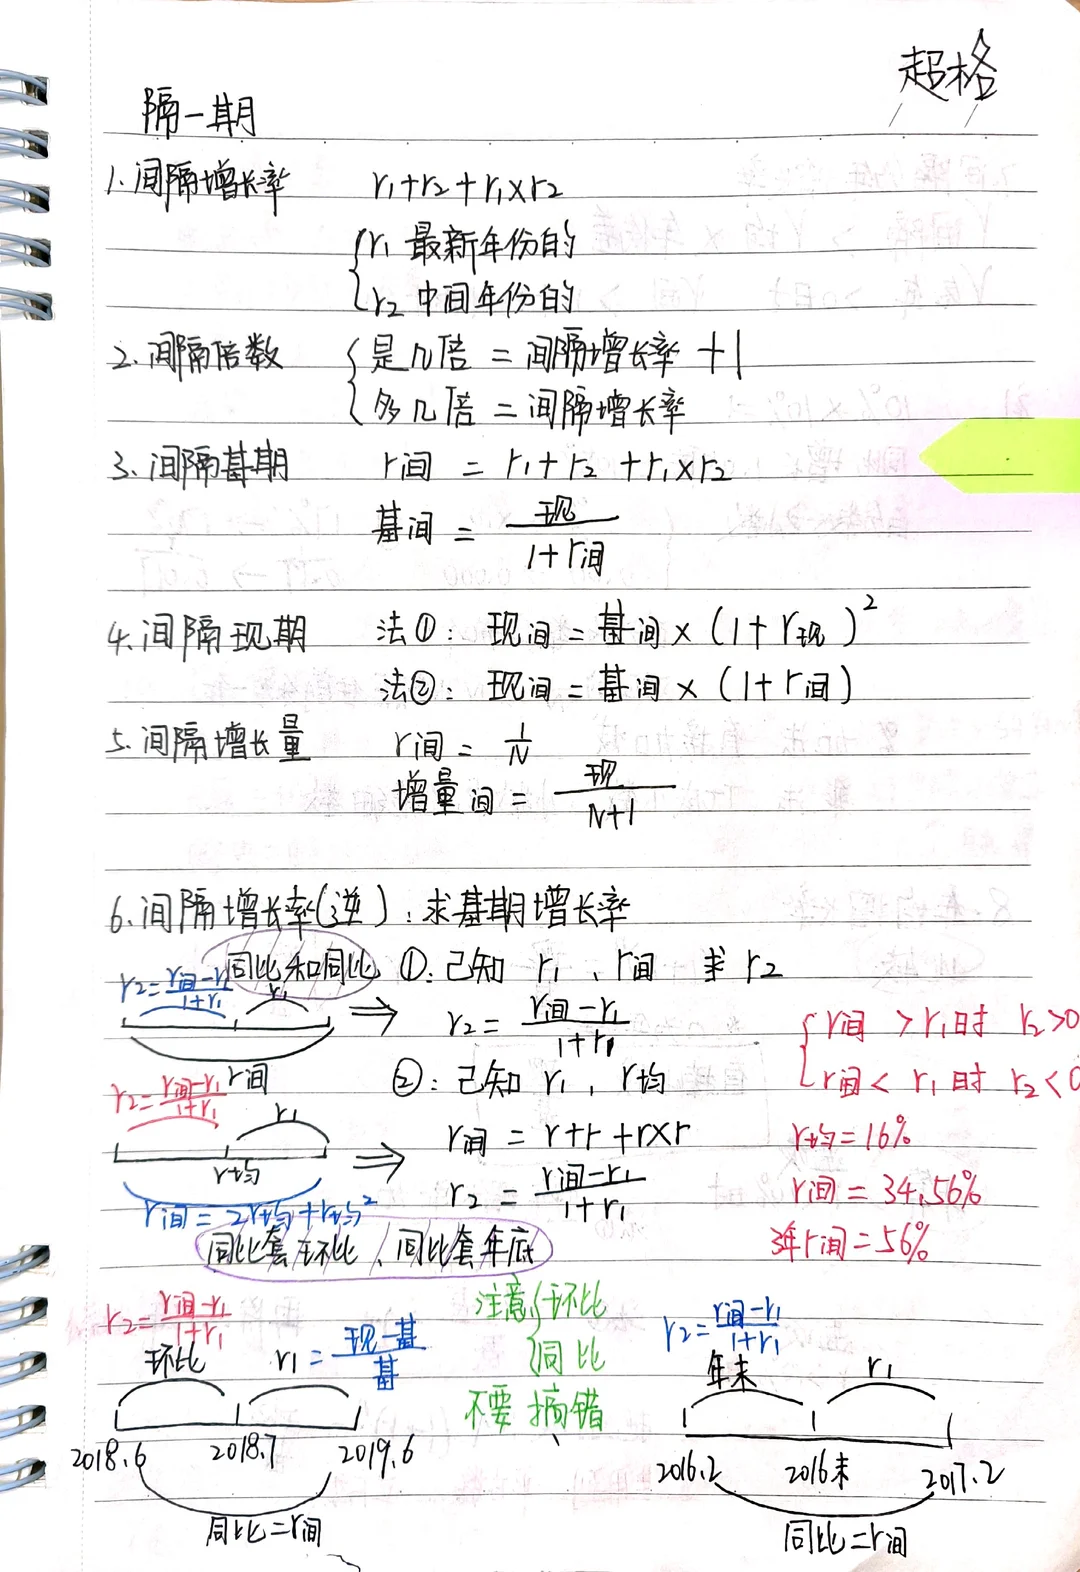 超格
隔一期
1.间隔增长率 r₁+r₂+r₁×r₂
{r₁ 最新年份的
r₂ 中间年份的
2.间隔倍数 {是几倍 = 间隔增长率 +1
多几倍 = 间隔增长率
3.间隔基期 r间 = r₁+r₂+r₁×r₂
基间 = 现/(1+r间)
4.间隔现期 法①: 现间=基间×(1+r现)²
法②: 现间=基间×(1+r间)
5.间隔增长量 r间 = 1/N
增量间 = 现/(N+1)
6.间隔增长率(逆):求基期增长率
同比和同比 ①:已知 r₁、r间 求 r₂
r₂=(r间-r₁)/(1+r₁) r₁
r₂=(r间-r₁)/(1+r₁) {r间 > r₁时 r₂>0
r间 ②:已知 r₁,r均 r间< r₁时 r₂<0
r₂=(r间-r₁)/(1+r₁) r₁
r间 = r+r+r×r r均=16%
r均 r₂ = (r间-r₁)/(1+r₁) r间=34.56%
r间=2r均+r均²
同比套环比、同比套年底 3年r间=56%
r₂=(r间-r₁)/(1+r₁) 注意{环比 r₂=(r间-r₁)/(1+r₁)
环比 r₁=(现-基)/基 同比 年末 r₁
不要搞错
2018.6 2018.7 2019.6 2016.2 2016末 2017.2
同比=r间 同比=r间